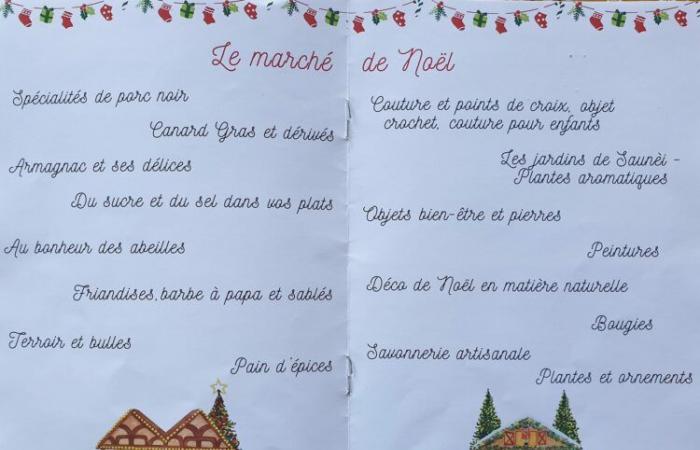 Le marché de Noël
Spécialités de porc noir
Canard Gras et dérivés
Armagnac et ses délices
Du sucre et du sel dans vos plats
Au bonheur des abeilles
Friandises, barbe à papa et sablés
Terroir et bulles
Pain d'épices
Couture et points de croix, objet
crochet, couture pour enfants
Les jardins de Saunèi -
Plantes aromatiques
Objets bien-être et pierres
Peintures
Déco de Noël en matière naturelle
Bougies
Savonnerie artisanale
Plantes et ornements